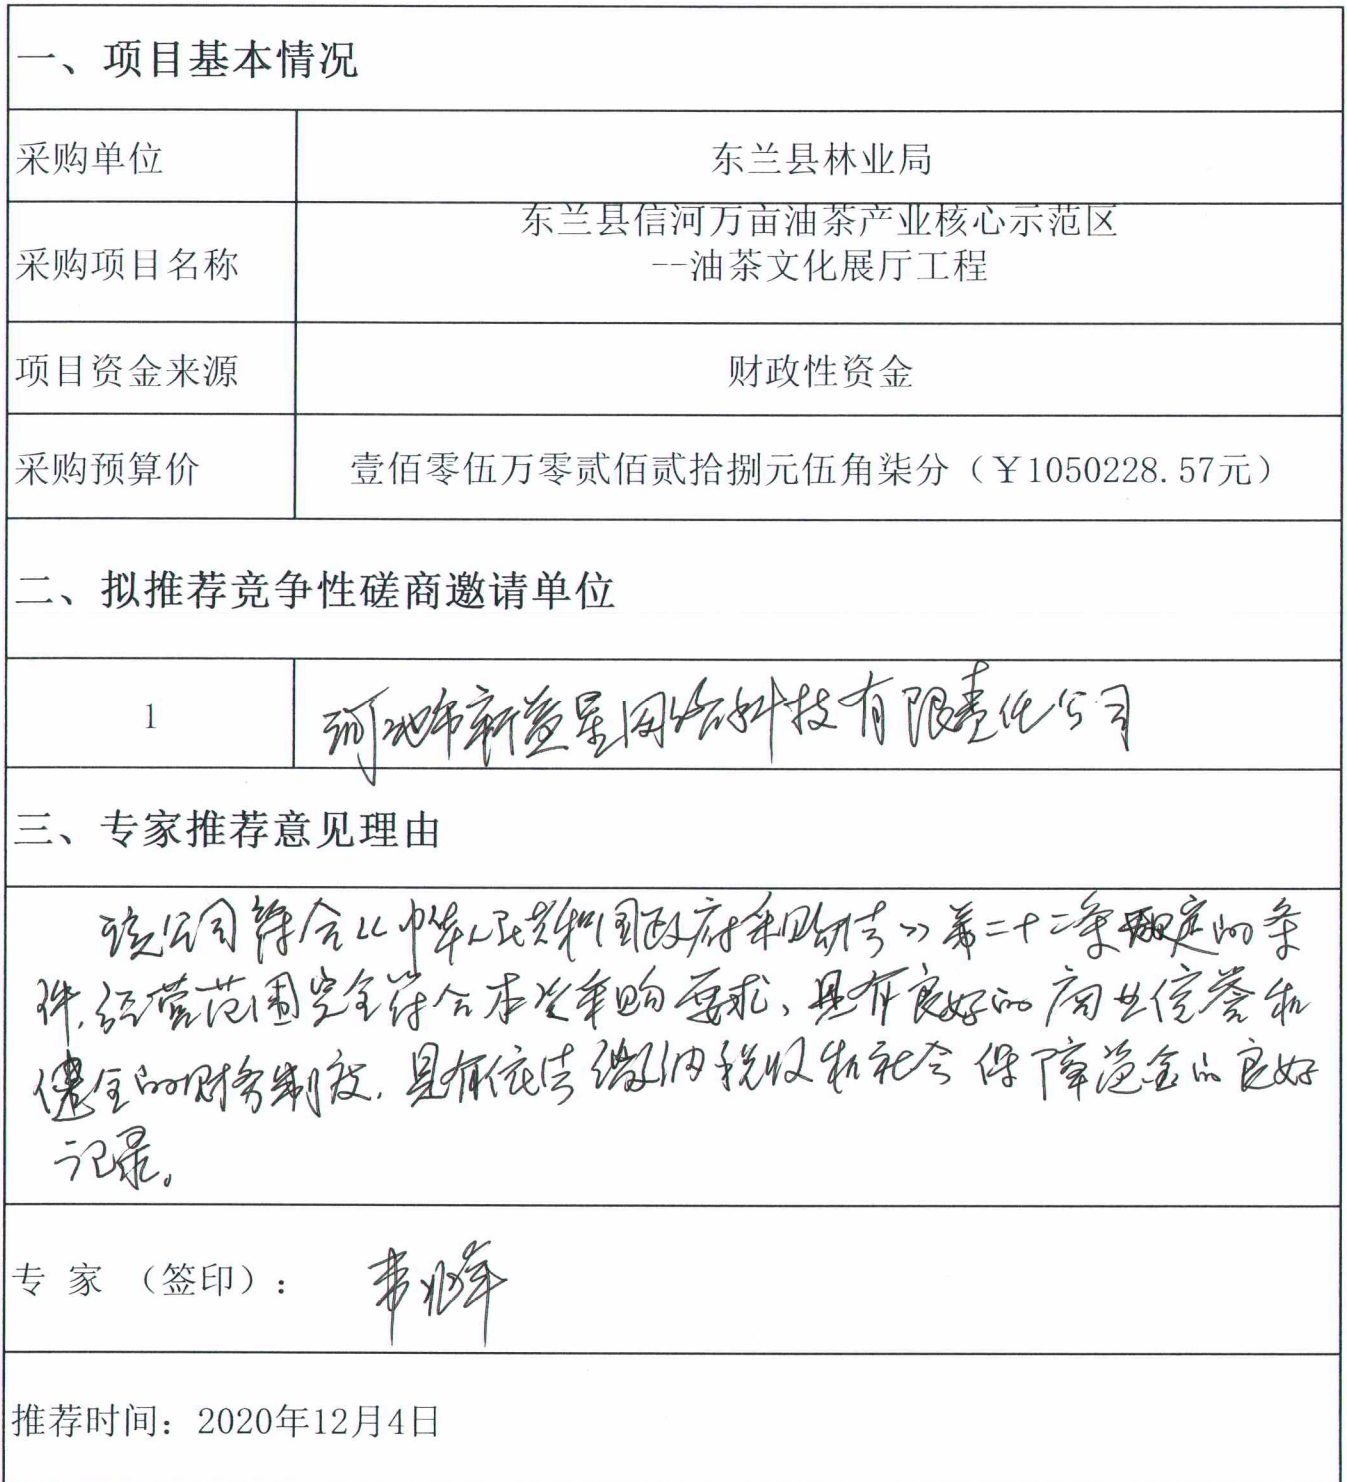 一、项目基本情况
采购单位
东兰县林业局
采购项目名称
东兰县信河万亩油茶产业核心示范区
--油茶文化展厅工程
项目资金来源
财政性资金
采购预算价
壹佰零伍万零贰佰贰拾捌元伍角柒分（￥1050228.57元）
二、拟推荐竞争性磋商邀请单位
1
河池市新益星网络科技有限责任公司
三、专家推荐意见理由
该公司符合《中华人民共和国政府采购法》第二十二条规定的条
件，经营范围完全符合本次采购要求、具有良好的商业信誉和
健全的财务制度，具有依法缴纳税收和社会保障资金的良好
记录。
专 家 （签印）：
韦
推荐时间：2020年12月4日